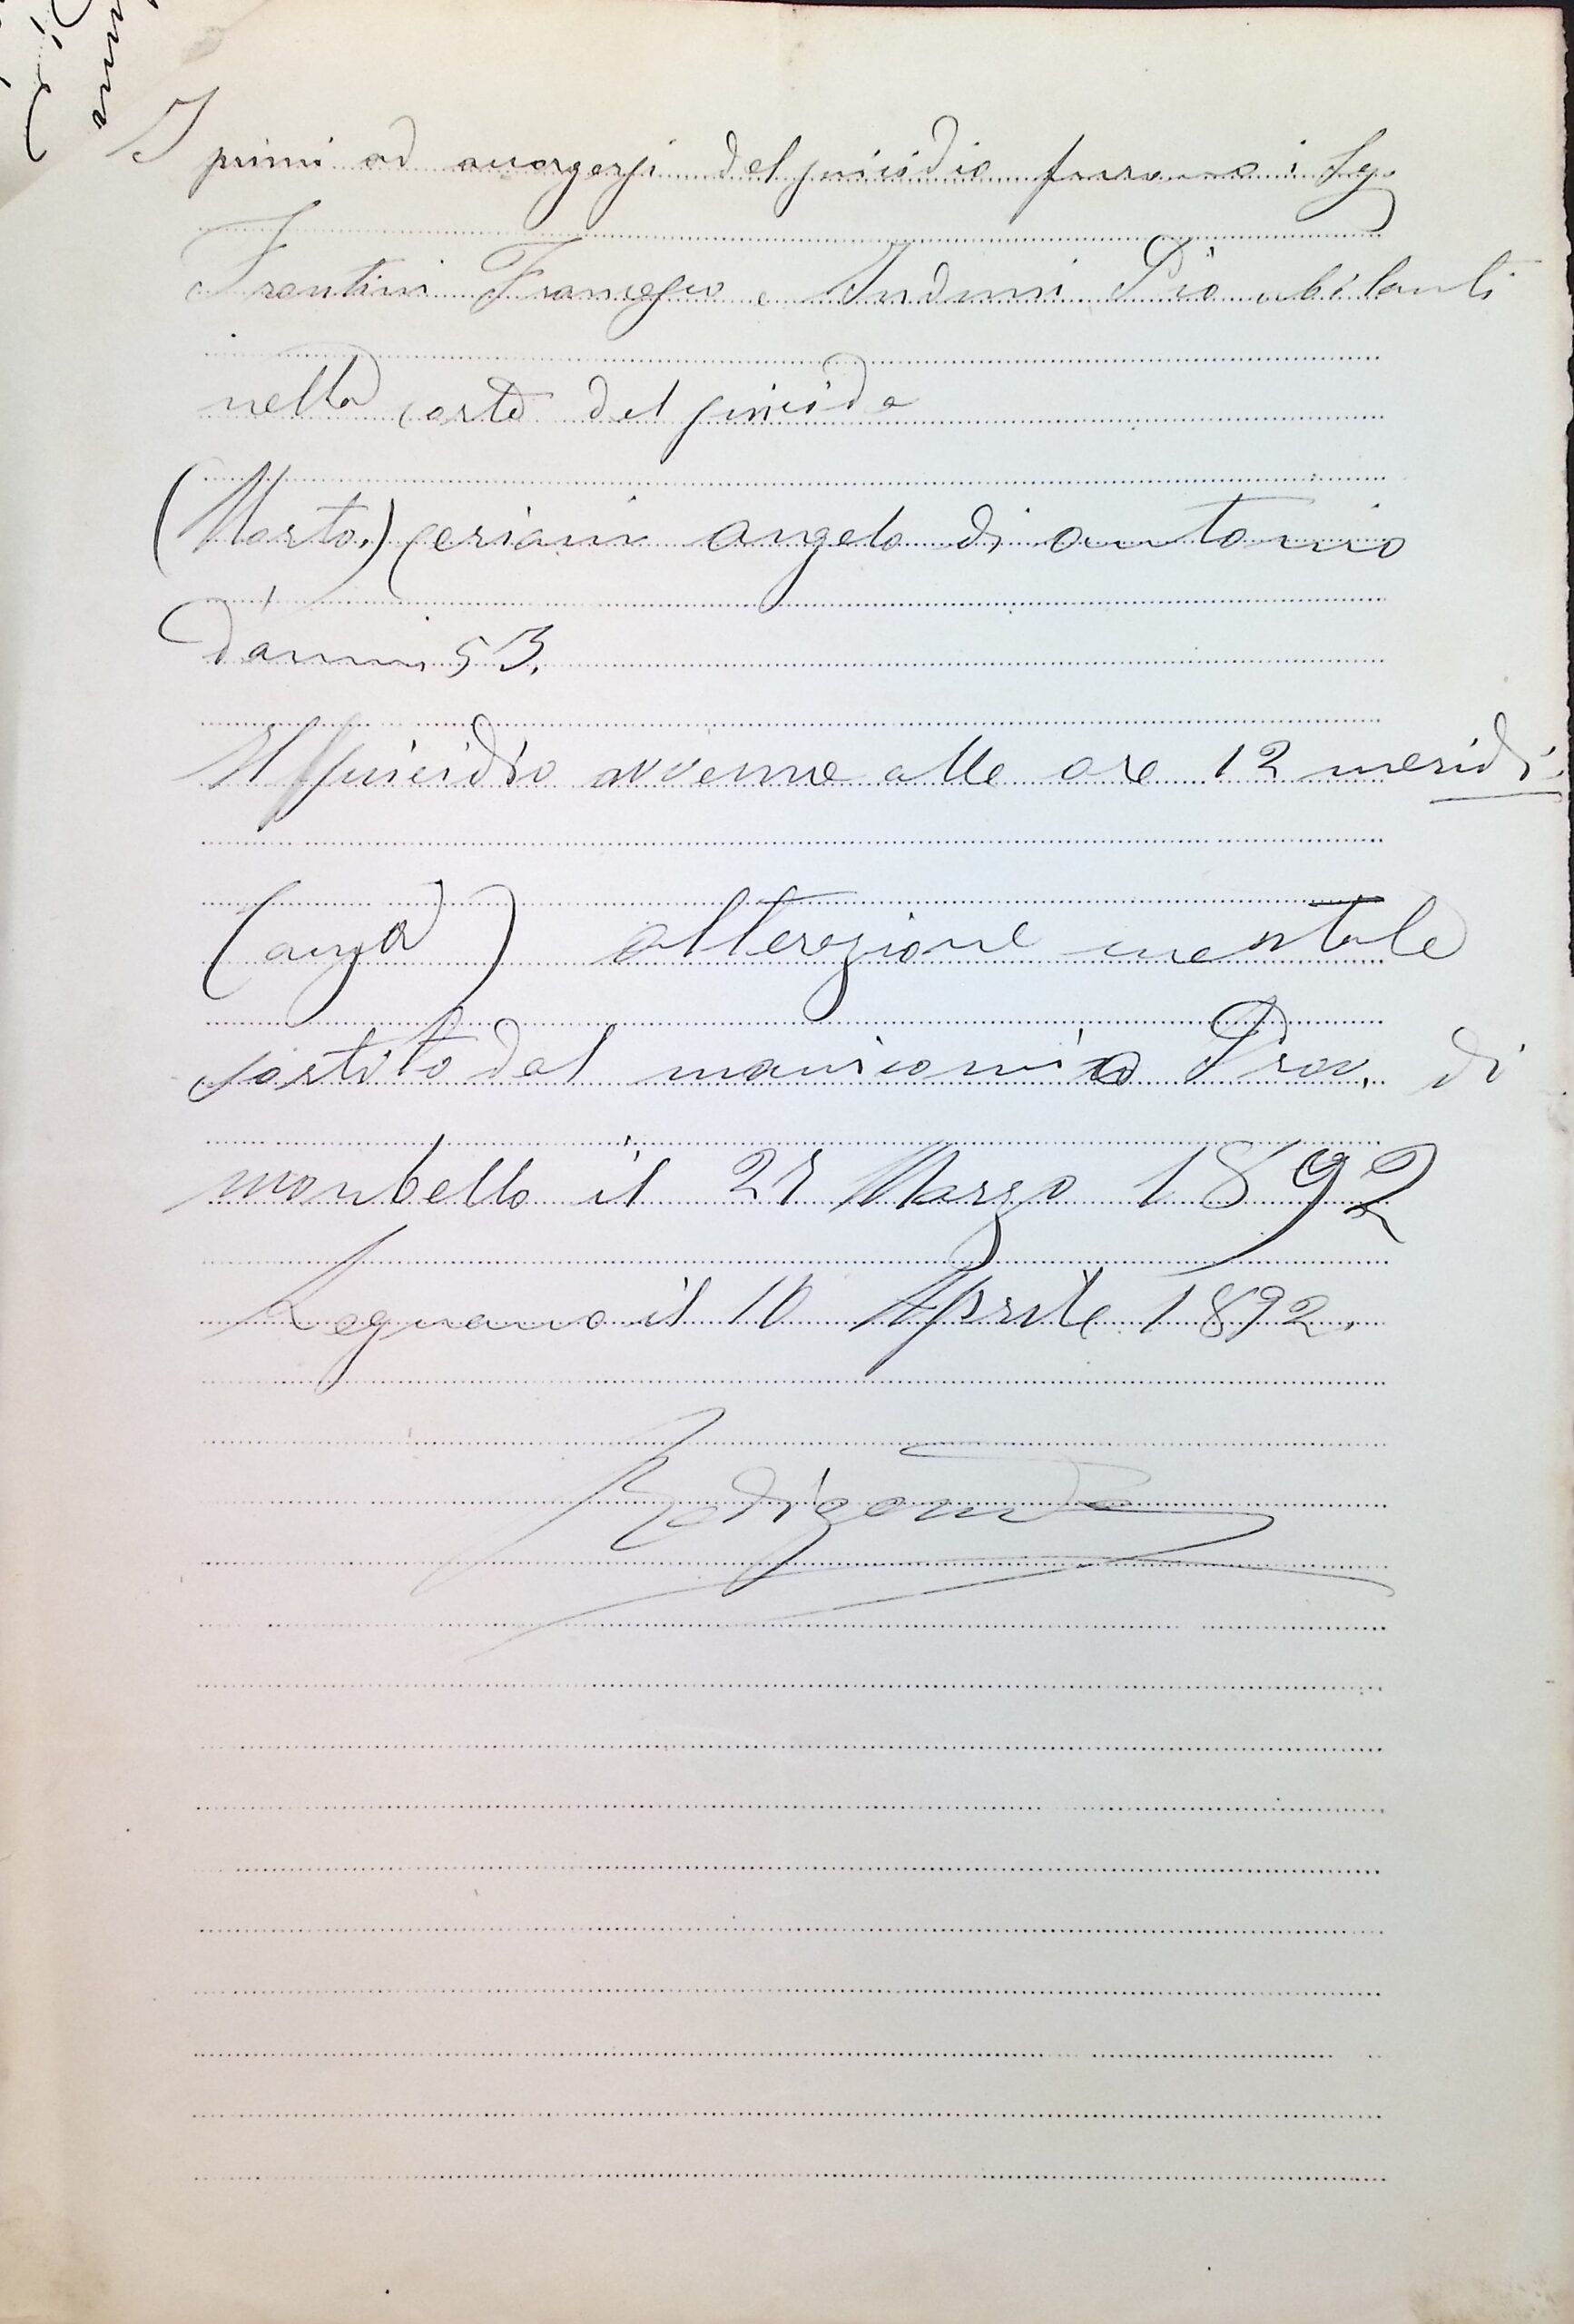 I primi ad accorgersi del suicidio furono i Sg.
Frantini Francesco e Induni Pio abitanti
nella corte del suicida
(Morto.) Ceriani Angelo di Antonio
d'anni 53.
Il suicidio avvenne alle ore 12 merid.
(      ) alterazione mentale
sortito dal manicomio Prov. di
Monbello il 27 Marzo 1892
Legnano il 10 Aprile 1892.